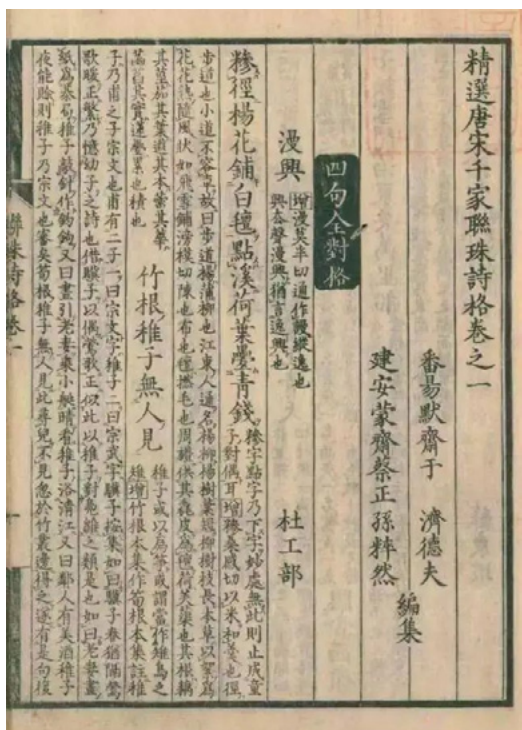 精選唐宋千家聯珠詩格卷之一
番昜默齋于　濟德夫
建安蒙齋蔡正孫粹然
編集
四句全對格
漫興
增漫莫半切通作謾縱逸也
興去聲漫興猶言遠興也
杜工部
糝徑楊花鋪白氊點溪荷葉疊青錢
糝字點字乃下字妙處無此則止成童
子對偶耳增糝桑感切以米和羹也徑
步道也小道不容車故曰步道楊蒲柳也江東人通名楊柳楊樹葉短柳樹枝長本草以絮為
花花隨風狀如飛雪鋪滂模切陳也布也氊撚毛也周禮供其毳皮為氊荷芙蕖也其根藕
其莖茄其葉蕸其本蔤其華
菡萏其實蓮疊累也積也
竹根稚子無人見
稚子或以為筍或謂當作雉鳥之
雉增竹根本集作筍根本集註稚
子乃甫之子宗文也甫有二子一曰宗文字稚子二曰宗武字驥子按集如曰驥子春猶隔鶯
歌暖正繁乃憶幼子之詩也借驥子以偶鶯歌正似此以稚子對鳧雛之類是也如曰老妻畫
紙為棊局稚子敲針作釣鉤又曰晝引老妻乘小艇晴看稚子浴清江又曰鄰人有美酒稚子
夜能賒則稚子乃宗文也審矣筍根稚子無人見此尋兒不見忽於竹叢邊得之遂有是句後
聯珠詩格卷一
一